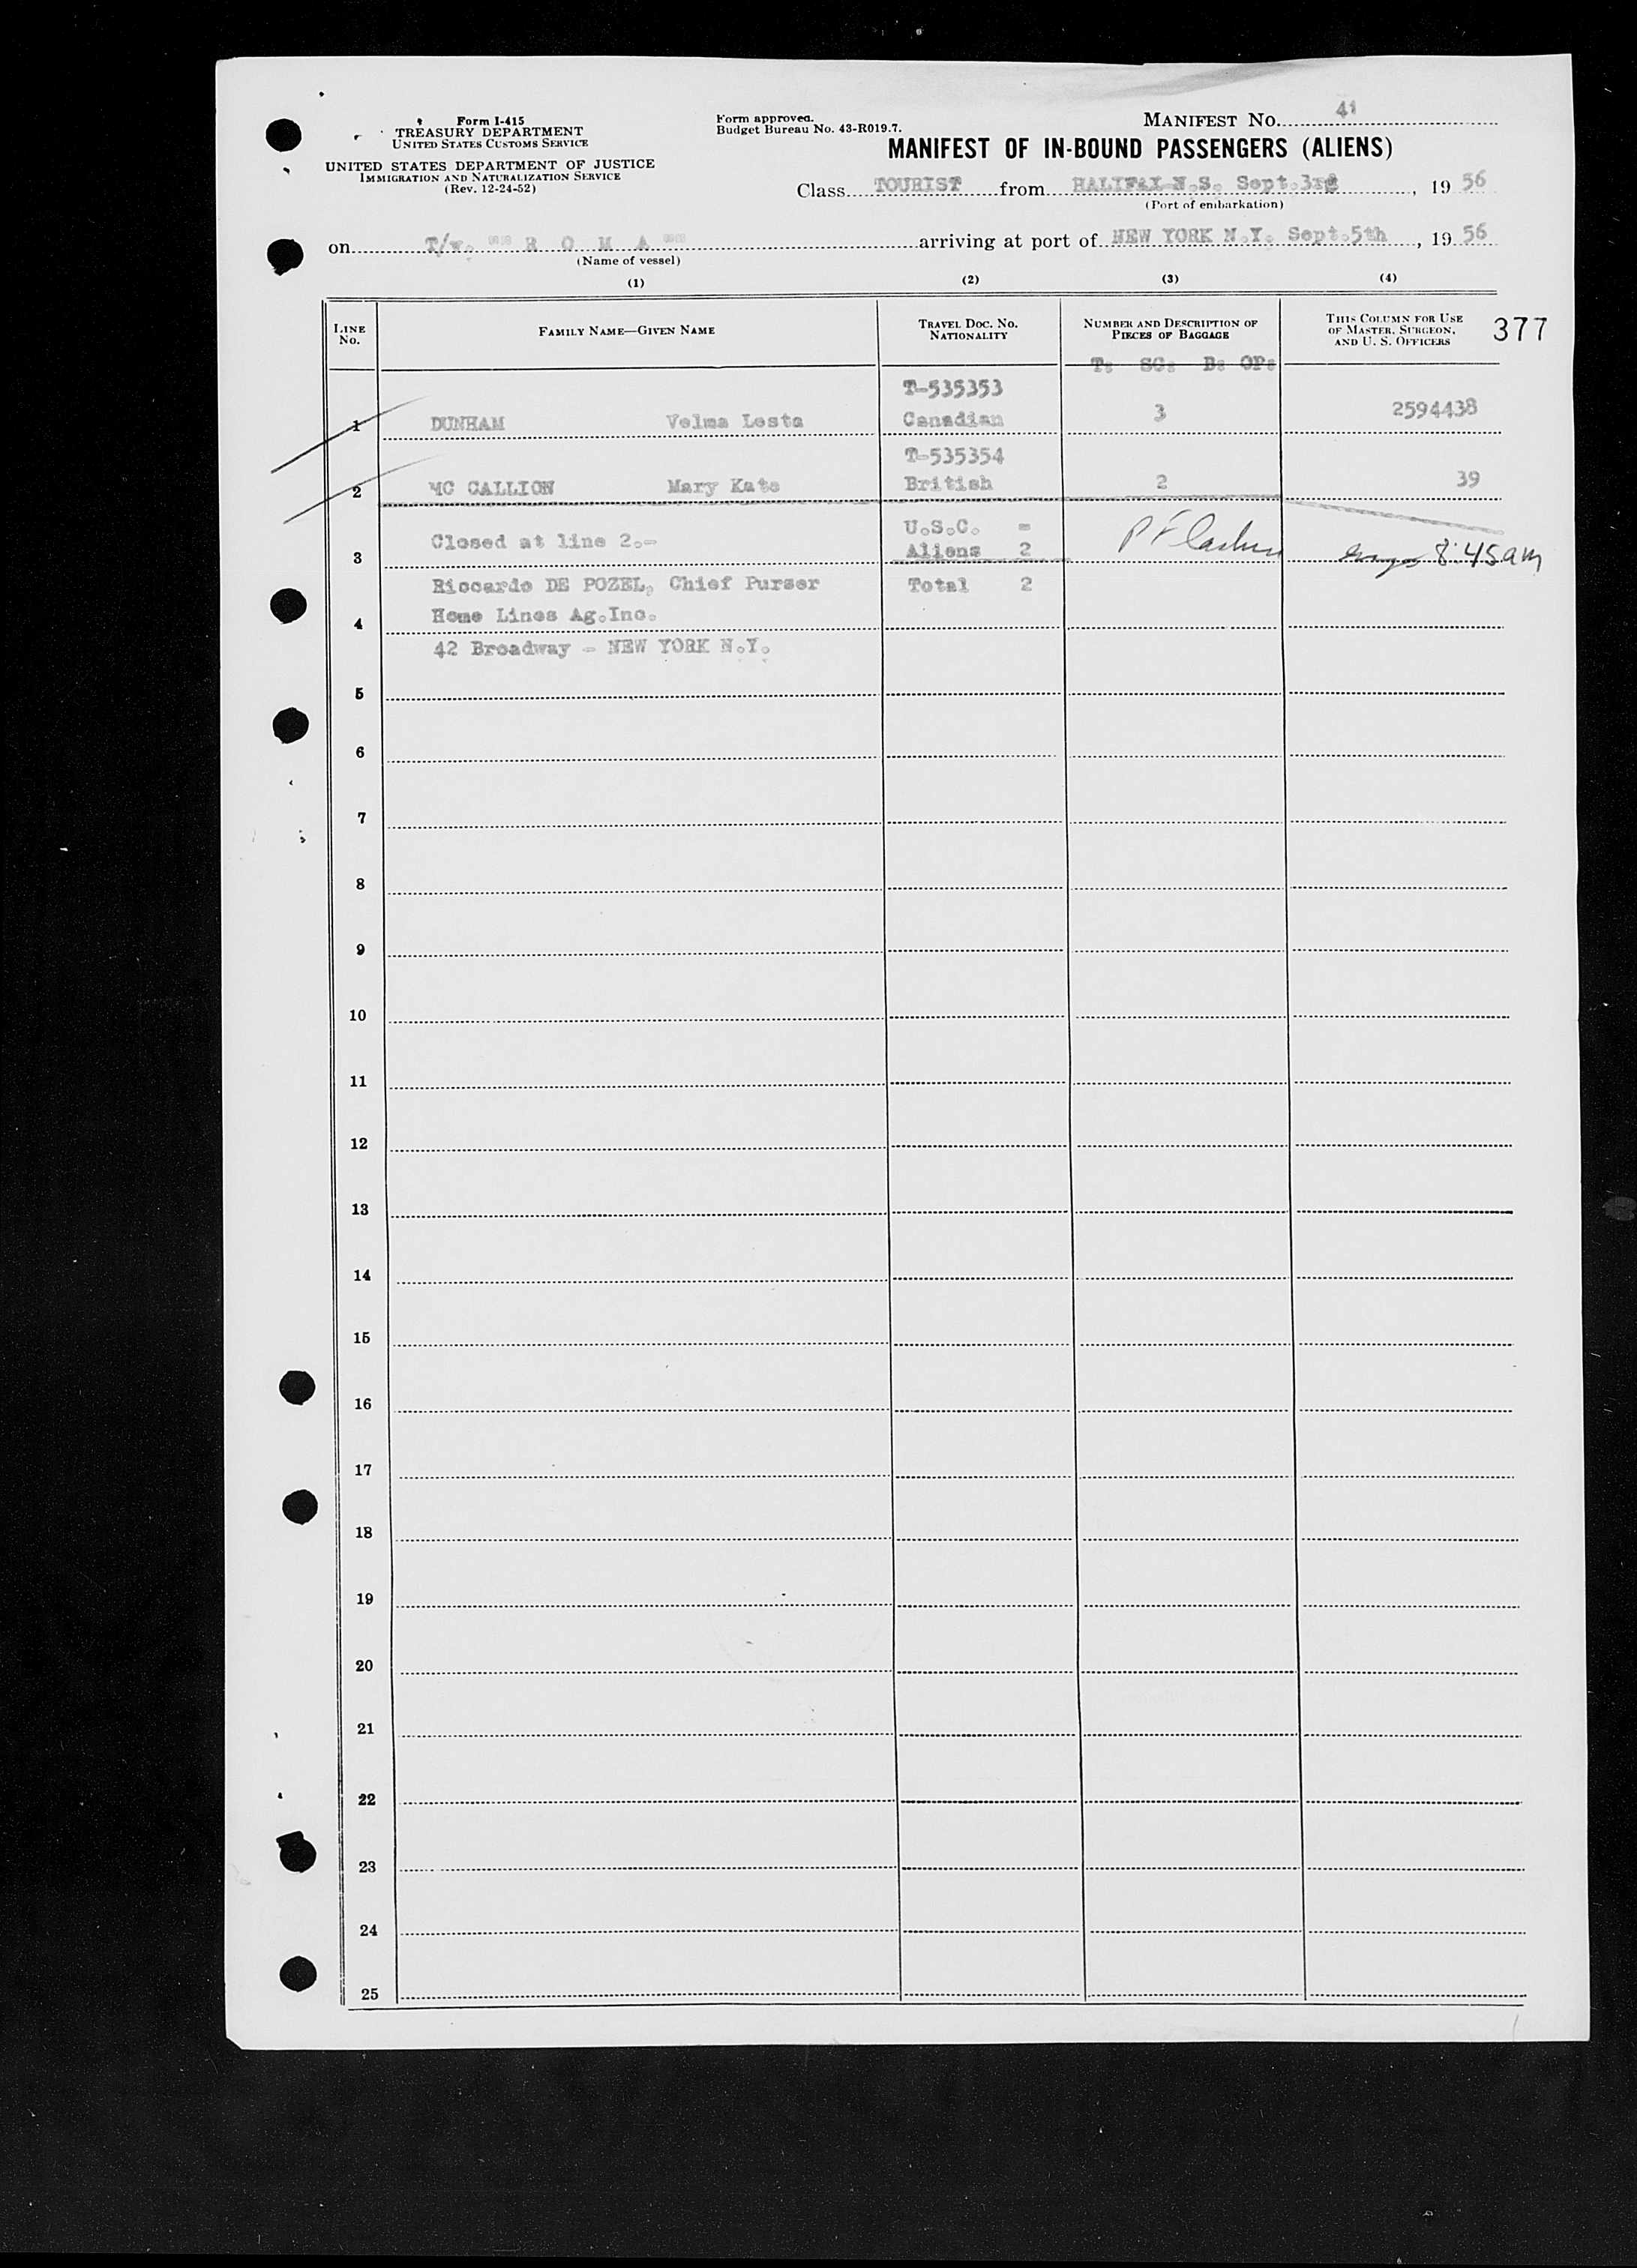 Form I-415
TREASURY DEPARTMENT
UNITED STATES CUSTOMS SERVICE
UNITED STATES DEPARTMENT OF JUSTICE
IMMIGRATION AND NATURALIZATION SERVICE
(Rev. 12-24-52)
Form approved.
Budget Bureau No. 43-R019.7.
MANIFEST NO. 41
MANIFEST OF IN-BOUND PASSENGERS (ALIENS)
Class TOURIST from HALIFAX N.S. Sept.3rd, 19 56
(Port of embarkation)
on T/n. "" R O M A "" arriving at port of NEW YORK N.Y. Sept.5th, 19 56
(Name of vessel)
(1) (2) (3) (4)
LINE NO. FAMILY NAME—GIVEN NAME TRAVEL DOC. NO. NATIONALITY NUMBER AND DESCRIPTION OF PIECES OF BAGGAGE THIS COLUMN FOR USE OF MASTER, SURGEON, AND U. S. OFFICERS 377
T: SC: B: OP:
T-535353
1 DUNHAM Velma Lesta Canadian 3 2594438
T-535354
2 MC CALLION Mary Kate British 2 39
Closed at line 2.- U.S.C. -
3 Aliens 2 8:45am
Riccardo DE POZEL, Chief Purser Total 2
4 Home Lines Ag.Inc.
42 Broadway - NEW YORK N.Y.
5
6
7
8
9
10
11
12
13
14
15
16
17
18
19
20
21
22
23
24
25